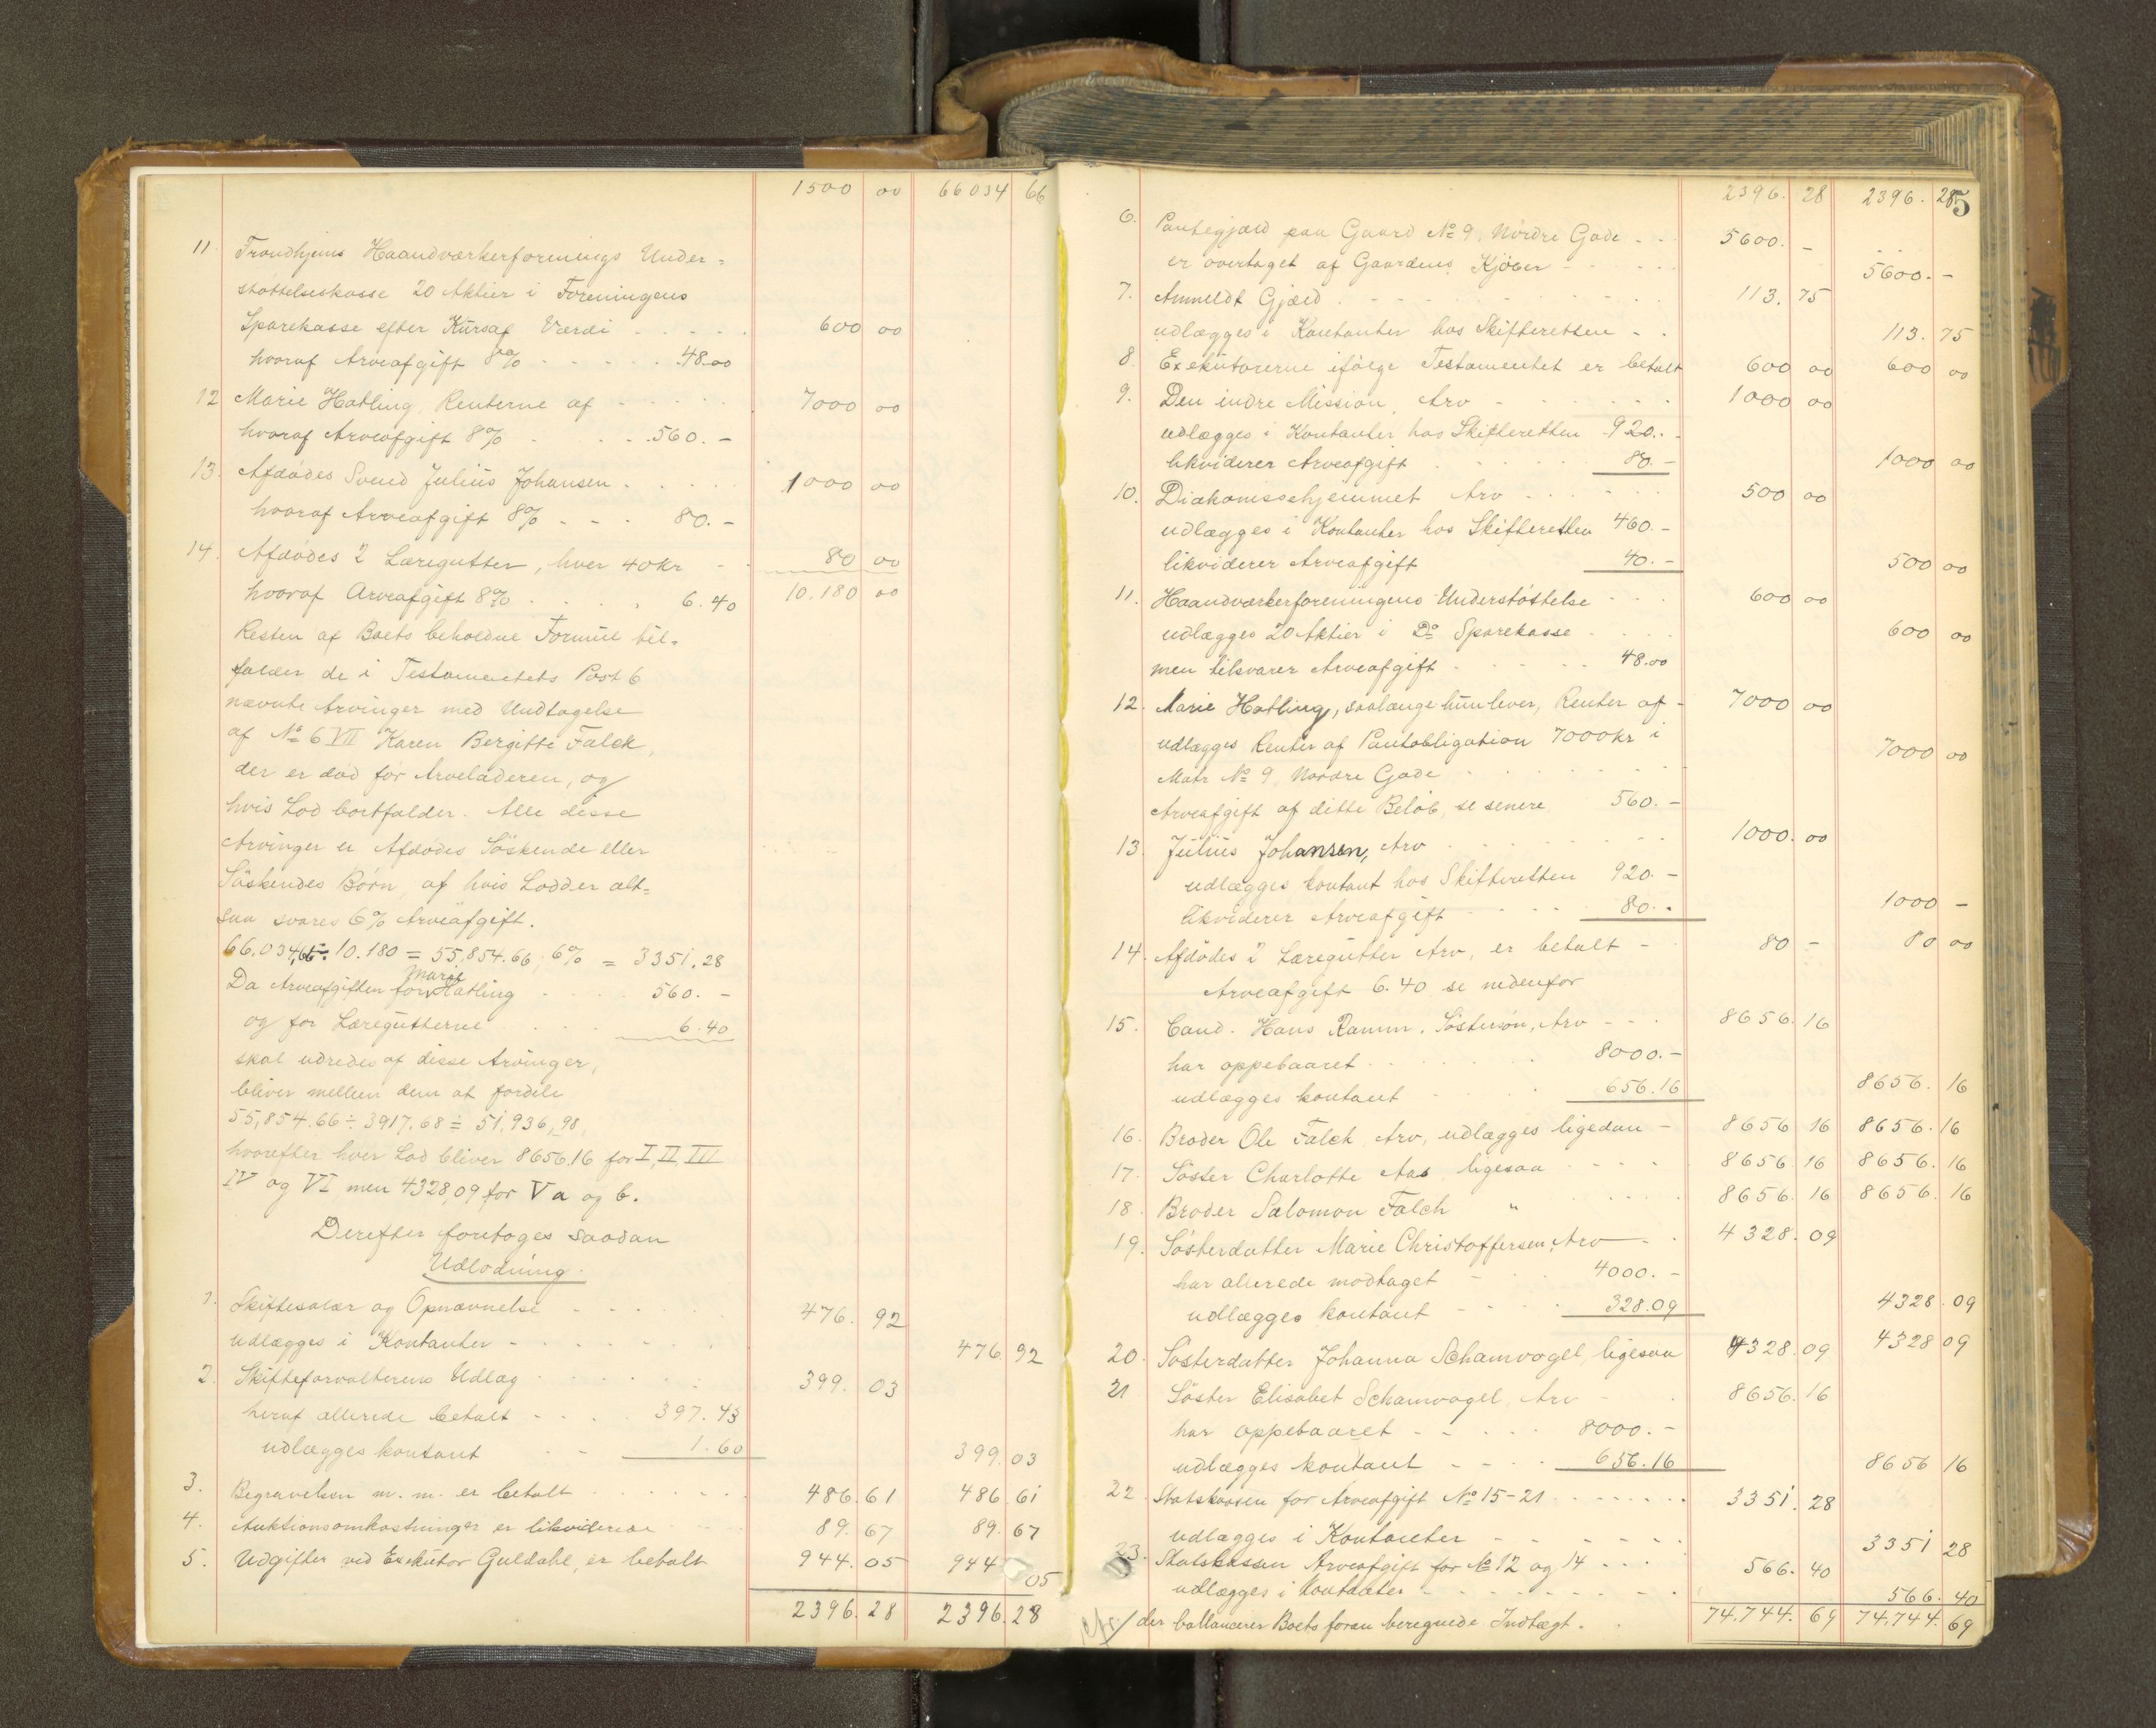 1500 00 66034 66
11. Trondhjems Haandværkerforenings Under=
støttelseskasse 20 Aktier i Foreningens
Sparekasse efter Kursaf Værdi - - - - 600 00
hvoraf Arveafgift 8% - - - - 48.00
12 Marie Hatling, Renterne af - - - - 7000 00
hvoraf Arveafgift 8% - - - 560. -
13. Afdødes Svend Julius Johansen - - - - 1000 00
hvoraf Arveafgift 8% - - - 80. -
14. Afdødes 2 Læregutter, hver 40 kr - - 80 00
hvoraf Arveafgift 8% - - - 6.40 10.180 00
Resten af Boets beholdne Formue til=
falder de i Testamentets Post 6
nævnte Arvinger med Undtagelse
af No 6 VII Karen Bergitte Falck,
der er død før Arveladeren, og
hvis Lod bortfalder. Alle disse
Arvinger er Afdødes Söskende eller
Söskendes Børn, af hvis Lodder alt=
saa svares 6% Arveafgift.
66.034,66 ÷ 10.180 = 55,854.66; 6% = 3351.28
Da Arveafgiften for Marie Hatling - - - 560. -
og for Læregutterne - - - 6.40
skal udredes af disse Arvinger,
bliver mellem dem at fordele
55,854.66 ÷ 3917.68 = 51,936,98,
hvorefter hver Lod bliver 8656.16 for I, II, III
IV og VI men 4328,09 for V a og b.
Derefter foretoges saadan
Udlodning.
1. Skiftesalær og Opnævnelse - - - - 476. 92
udlægges i Kontanter - - - - 476 92
2. Skifteforvalterens Udlæg - - - - 399. 03
heraf allerede betalt - - - 397.43
udlægges kontant - - 1.60 399.03
3. Begravelsen m. m. er betalt - - - - 486.61 486.61
4. Auktionsomkostninger er likviderede 89.67 89.67
5. Udgifter ved Exekutor Guldahl, er betalt 944.05 944 05
2396.28 2396.28
5
2396. 28 2396. 28
6. Pantegjæld paa Gaard No 9, Nordre Gade - - 5600. -
er overtaget af Gaardens Kjøber - - - - 5600. -
7. Anmeldt Gjæld - - - - 113. 75
udlægges i Kontanter hos Skifteretten - - 113. 75
8. Exekutorerne ifølge Testamentet er betalt 600 00 600 00
9. Den indre Mission, Arv - - - - 1000 00
udlægges i Kontanter hos Skifteretten 920. -
likviderer Arveafgift - - - 80. - 1000 00
10. Diakonissehjemmet Arv - - - - 500 00
udlægges i Kontanter hos Skifteretten 460. -
likviderer Arveafgift 40. - 500 00
11. Haandværkerforeningens Understøttelse - - - 600 00
udlægges 20 Aktier i Do Sparekasse - - - 600 00
men tilsvarer Arveafgift - - - 48.00
12. Marie Hatling, saalænge hun lever, Renter af - 7000 00
udlægges Renter af Pantobligation 7000 kr i
Matr No 9, Nordre Gade - - - - 7000 00
Arveafgift af dette Beløb, se senere 560. -
13. Julius Johansen, Arv - - - - 1000. 00
udlægges kontant hos Skifteretten 920. -
likviderer Arveafgift - - - 80. - 1000 -
14. Afdødes 2 Læregutter Arv, er betalt - 80 - 80 00
Arveafgift 6.40 se nedenfor
15. Cand. Hans Ramm, Söstersön, Arv - - - 8656.16
har oppebaaret - - - 8000. -
udlægges kontant - - - 656.16 8656. 16
16. Broder Ole Falck Arv, udlægges ligedan - 8656 16 8656. 16
17. Söster Charlotte Aas ligesaa - - - - 8656 16 8656. 16
18. Broder Salomon Falch " - - - - 8656. 16 8656. 16
19. Sösterdatter Marie Christoffersen, Arv - - 4328. 09
har allerede modtaget - - 4000. -
udlægges kontant - - - 328.09 4328.09
20. Sösterdatter Johanna Schamvogel, ligesaa 4328.09 4328 09
21 Söster Elisabet Schamvogel, Arv - - 8656. 16
har oppebaaret - - - - 8000. -
udlægges kontant - - - - 656.16 8656 16
22. Statskassen for Arveafgift No 15-21 - - - - 3351. 28
udlægges i Kontanter - - - - 3351 28
23. Statskassen Arveafgift for No 12 og 14 - - - 566. 40
udlægges i Kontanter - - - - 566. 40
der ballancerer Boets foran beregnede Indtægt. 74,744. 69 74,744. 69